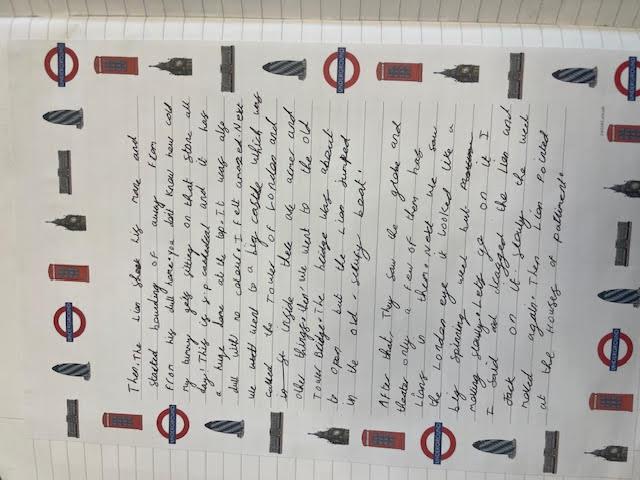 Then, The Lion shook his mane and
started bounding of away from
from his dull home. you don't know how cold
my bunny gets sitting on that stone all
day! This is s.p cathedral and it has
a huge dome at the top. It was also
dull with no colour. I felt amazed. Next
we went to a big castle which was
called the Tower of London and
inside there are armer and
other things. that, we went to the old
Tower Bridge. The bridge was about
to open but the Lion jumped
in the old, selling boat!
After that They saw the globe and
theater only a few of them has
Lions in them. Next we saw
the London eye it looked like a
big spinning weel but
moving slowly. Lets go on it I
I said and dragged the Lion and
Jack on it slowly the weel
moved again. Then Lion Poined
at the Houses of paliment.
UNDERGROUND
UNDERGROUND
UNDERGROUND
UNDERGROUND
UNDERGROUND
UNDERGROUND
UNDERGROUND